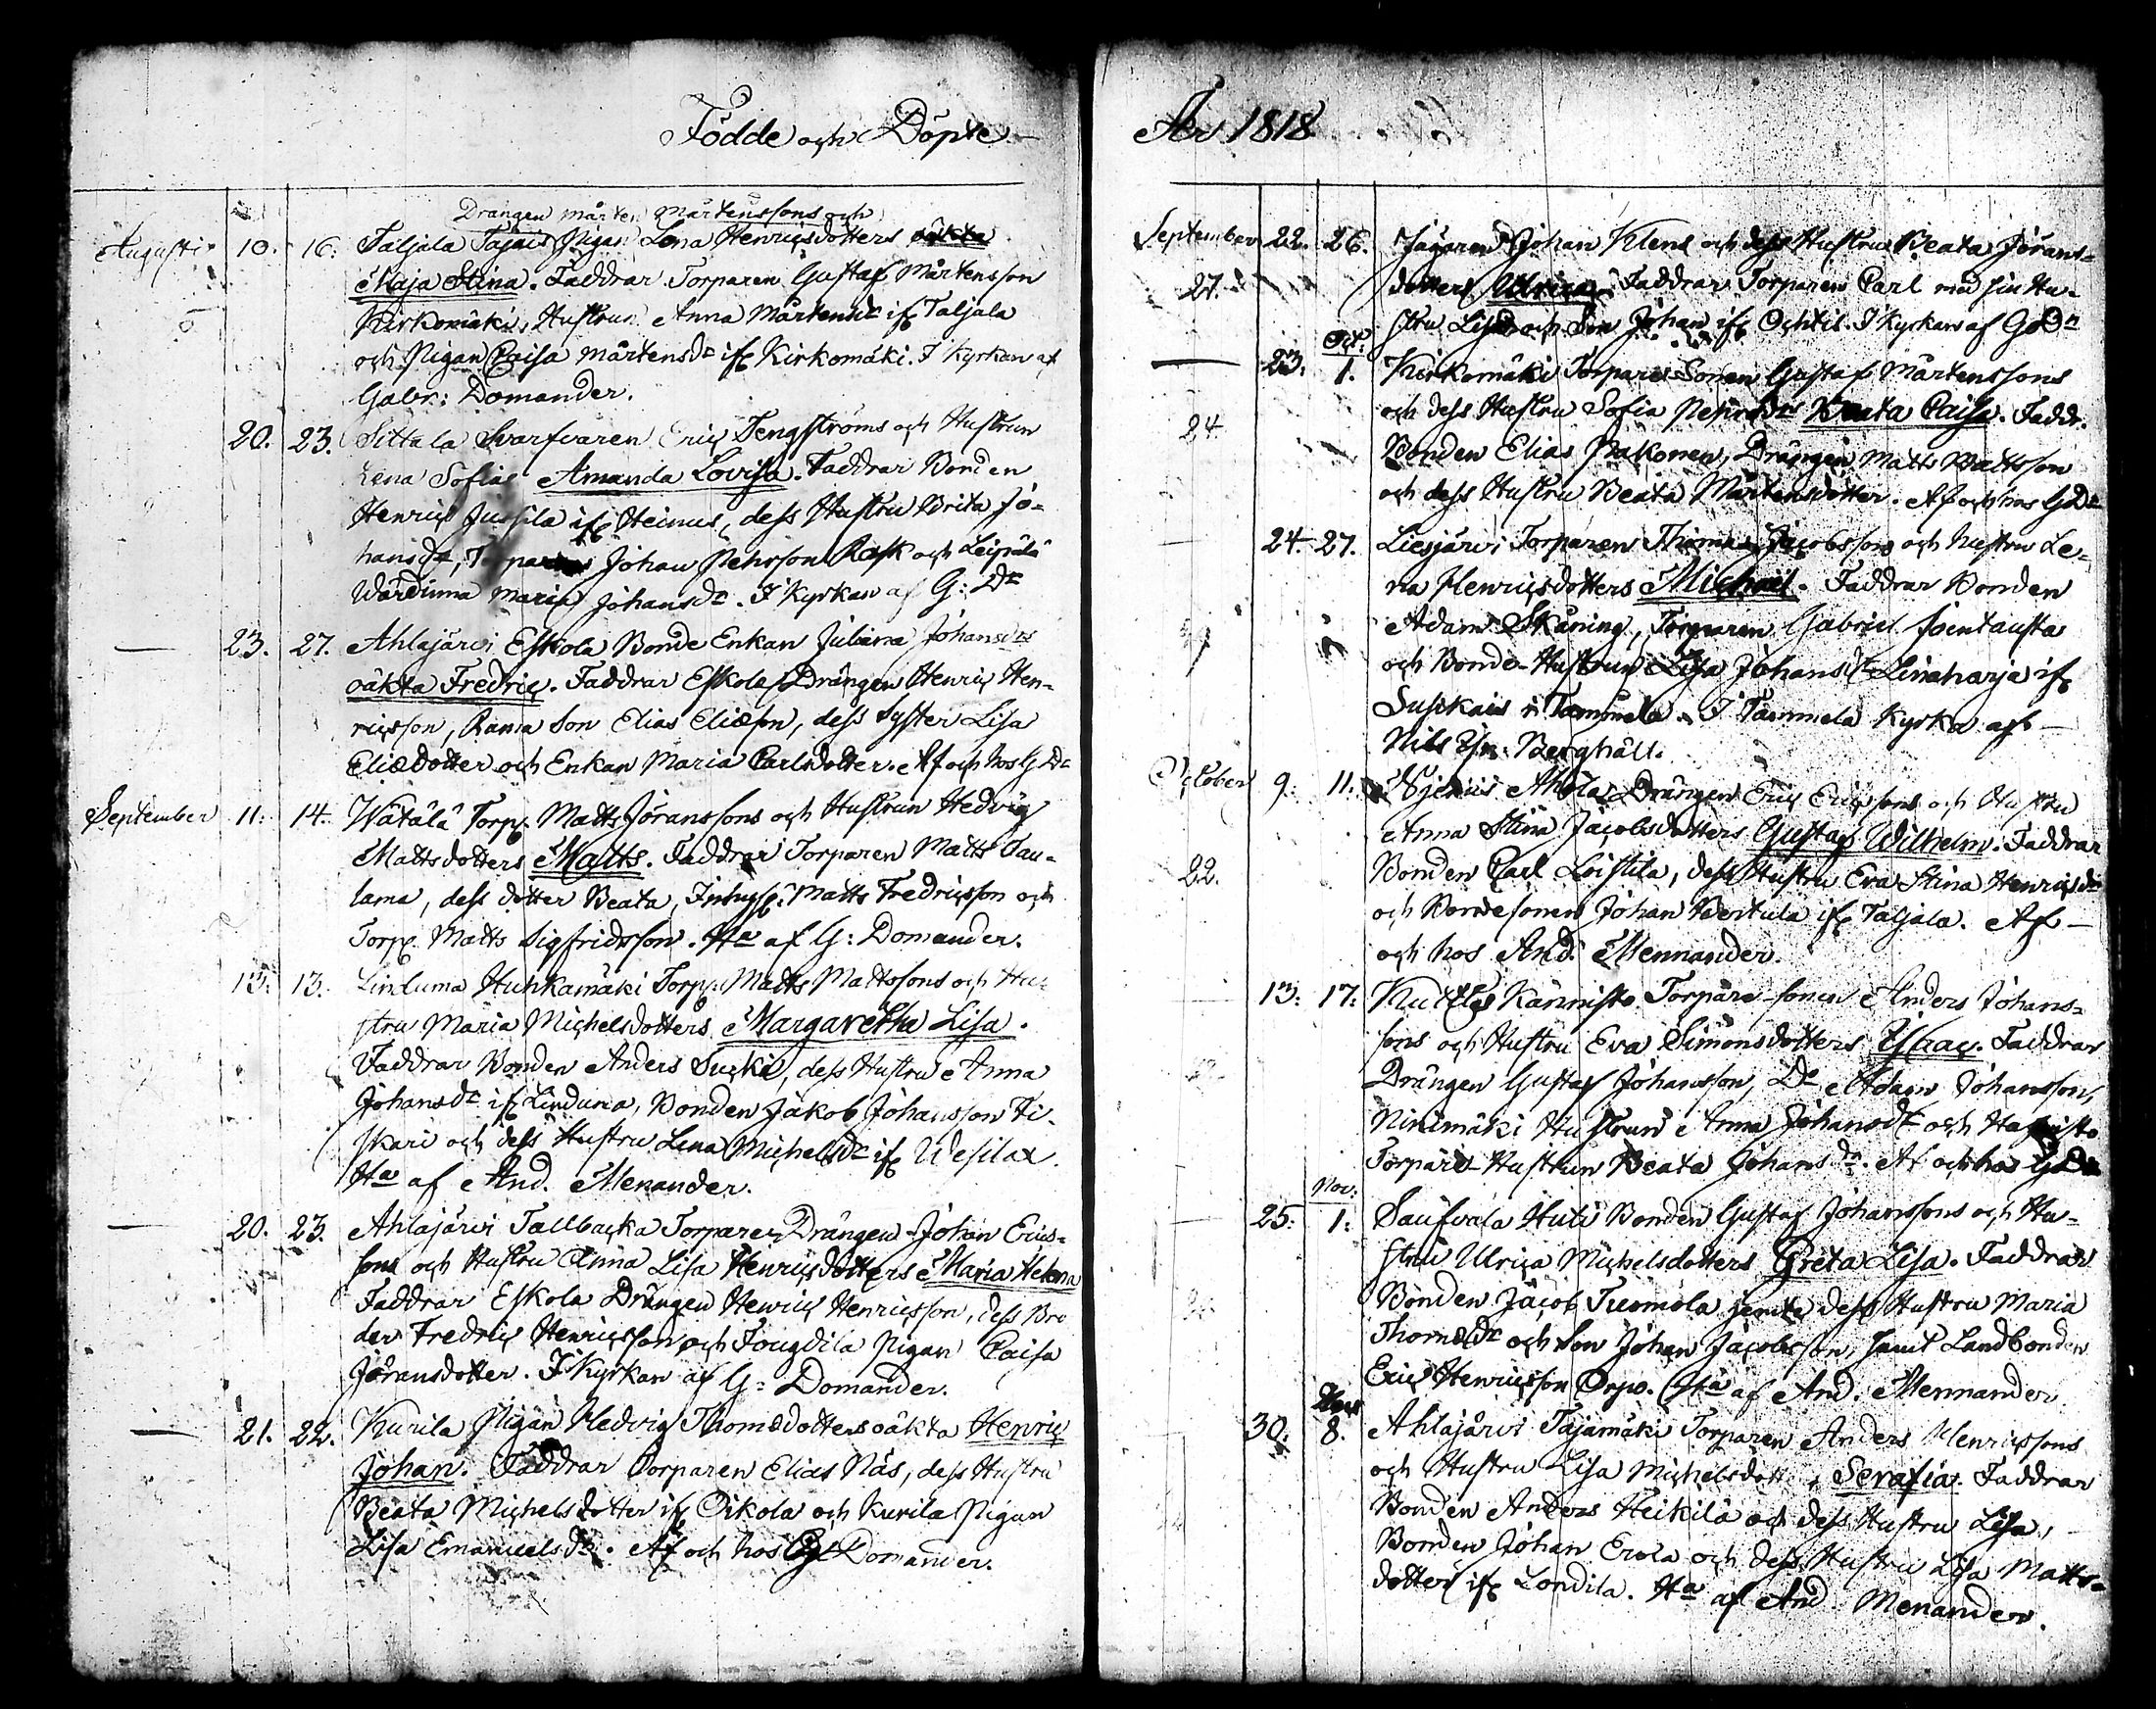 Födde och Döpte
Drängen Mårten Mårtenssons och
Augusti 10. 16. Taljala Tajais Pigan Lena Henricsdotters oäkta
Maja Stina. Faddrar Torparen Gustaf Mårtensson
Kirkomäki, Hustrun Anna Mårtensdr ifr Taljala
och Pigan Caisa Mårtensdr ifr Kirkomäki. I Kyrkan af
Gabr: Domander.
20. 23. Sittala Svarfvaren Eric Tengströms och Hustrun
Lena Sofias Amanda Lovisa. Faddrar Bonden
Henric Jussila ifr Heinus, dess Hustru Brita Jo-
hansdr, Torparen Johan Pehrson Rask och Leipälä
Wärdinna Maria Johansdr. I Kyrkan af G: Dr
23. 27. Ahlajärvi Eskola Bonde Enkan Juliana Johansdrs
oäkta Fredric. Faddrar Eskola Drängen Henric Hen-
ricsson, Rama Son Elias Eliæson, dess Syster Lisa
Eliædotter och Enkan Maria Carlsdotter. Af och hos G Dr
September 11. 14. Wätälä Torp. Matts Jöranssons och Hustrun Hedvig
Mattsdotters Matts. Faddrar Torparen Matts Tau-
lama, dess dotter Beata, Inhys. Matts Fredricsson och
Torp. Matts Sigfridsson. Ha af G: Domander.
13. 13. Linduma Huhkamäki Torp. Matts Mattssons och Hu-
stru Maria Michelsdotters Margaretha Lisa.
Faddrar Bonden Anders Sucki, dess Hustru Anna
Johansdr ifr Linduma, Bonden Jakob Johansson Fi-
skari och dess Hustru Lena Michelsdr ifr Wesilax.
Ha af And. Menander.
20. 23. Ahlajärvi Tallbacka Torpare Drängen Johan Erics-
sons och Hustru Anna Lisa Henricsdotters Maria Helena
Faddrar Eskola Drängen Henric Henricsson, dess Bro
der Fredric Henricsson och Fougdila Pigan Caisa
Jöransdotter. I Kyrkan af G: Domander.
21. 22. Kurila Pigan Hedvig Thomædotters oäkta Henric
Johan. Faddrar Torparen Elias Näs, dess Hustru
Beata Michelsdotter ifr Oikola och Kurila Pigan
Lisa Emanuelsdr. Af och hos G Domander.
År 1818
September 22. 26. Jägaren Johan Klens och dess Hustru Beata Jörans-
27. dotters Ulrica. Faddrar Torparen Carl med sin Hu-
stru Lisa och Son Johan ifr Ochtis. I Kyrkan af G Dr
Oct:
23. 1. Kirkomäki Torpare Sonen Gustaf Mårtenssons
24 och dess Hustru Sofia Pehrsdrs Beata Caisa. Faddr.
Bonden Elias Pakonen, Drängen Matts Mattsson
och dess Hustru Beata Mårtensdotter. Af och hos G Dr
24. 27. Liesjärvi Torparen Thomas Jacobssons och Hustru Le-
na Henricsdotters Michael. Faddrar Bonden
Adam Skåning, Torparen Gabriel Sointausta
och Bonde-Hustrun Lisa Johansdr Linaharja ifr
Susikais i Tammela. I Tammela Kyrka af
Nils Berghäll.
October 9. 11. Ahola Drängen Eric Ericssons och Hustru
Anna Stina Jacobsdotters Gustaf Wilhelm. Faddrar
22. Bonden Carl Loistila, dess Hustru Eva Stina Henricsdr
och Bondesonen Johan Bertula ifr Taljala. Af
och hos And. Mennander.
13. 17. Kännisto Torpare-sonen Anders Johans-
sons och Hustru Eva Simonsdotters Isaac. Faddrar
Drängen Gustaf Johansson, Do Adam Johansson,
Ninimäki Hustrun Anna Johansdr och
Torpare-Hustrun Beata Johansdr. Af och hos G Dr
Nov:
25. 1. Saufvala Huli Bonden Gustaf Johanssons och Hu-
stru Ulrica Michelsdotters Greta Lisa. Faddrar
Bonden Jacob Tuomola jemte dess Hustru Maria
Thomædr och Son Johan Jacobsson, samt Landbonden
Eric Henricsson Orpo. Ha af And. Mennander
30. 8. Ahlajärvi Tajamäki Torparen Anders Henricssons
och Hustru Lisa Michelsdotters Serafia. Faddrar
Bonden Anders Heikilä och dess Hustru Lisa,
Bonden Johan Erola och dess Hustru Lisa Matts-
dotter ifr Londila. Ha af And Menander.